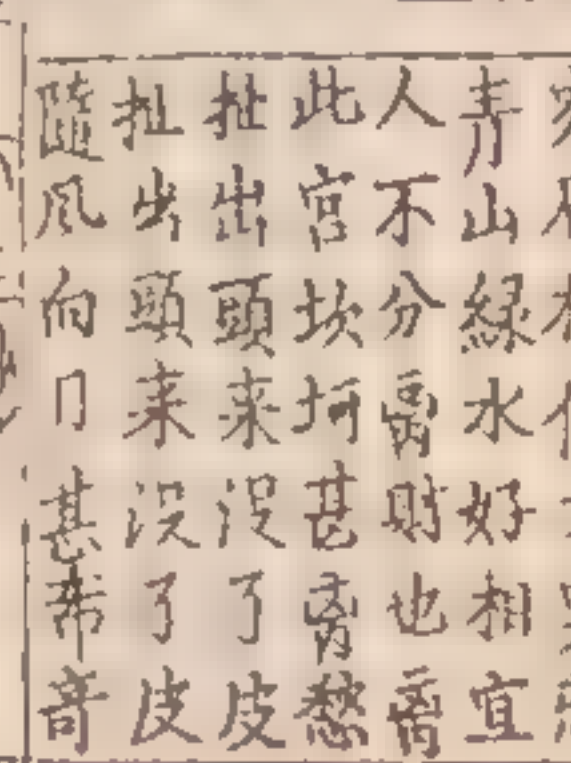 青山綠水好相宜
人不分离財也离
此宮坎坷甚离愁
扯出頭来没了皮
扯出頭来没了皮
隨風向甚希奇